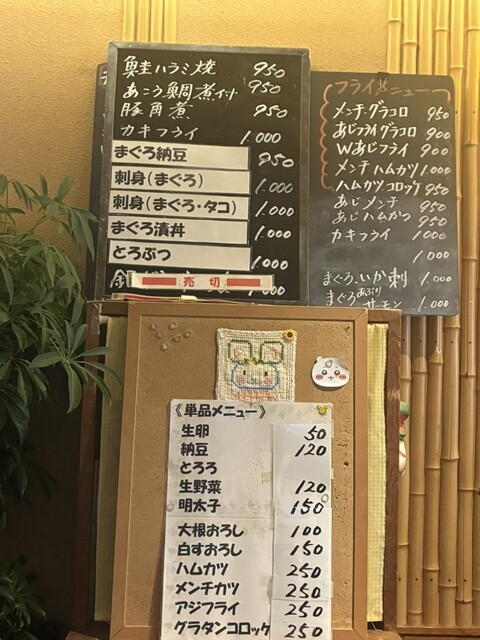 鮭ハラミ焼 950
あこう鯛煮付 950
豚角煮 950
カキフライ 1.000
まぐろ納豆 950
刺身(まぐろ) 1.000
刺身(まぐろ・タコ) 1.000
まぐろ漬丼 1.000
とろぶつ 1.000
売切
フライメニュー
メンチ・グラコロ 950
あじフライグラコロ 900
Wあじフライ 900
メンチハムカツ 1.000
ハムカツコロッケ 950
あじメンチ 950
あじハムかつ 950
カキフライ 1000
1.000
まぐろ、いか刺 1.000
まぐろあぶりサーモン 1.000
《単品メニュー》
生卵 50
納豆 120
とろろ
生野菜 120
明太子 150
大根おろし 100
白すおろし 150
ハムカツ 250
メンチカツ 250
アジフライ 250
グラタンコロッケ 250